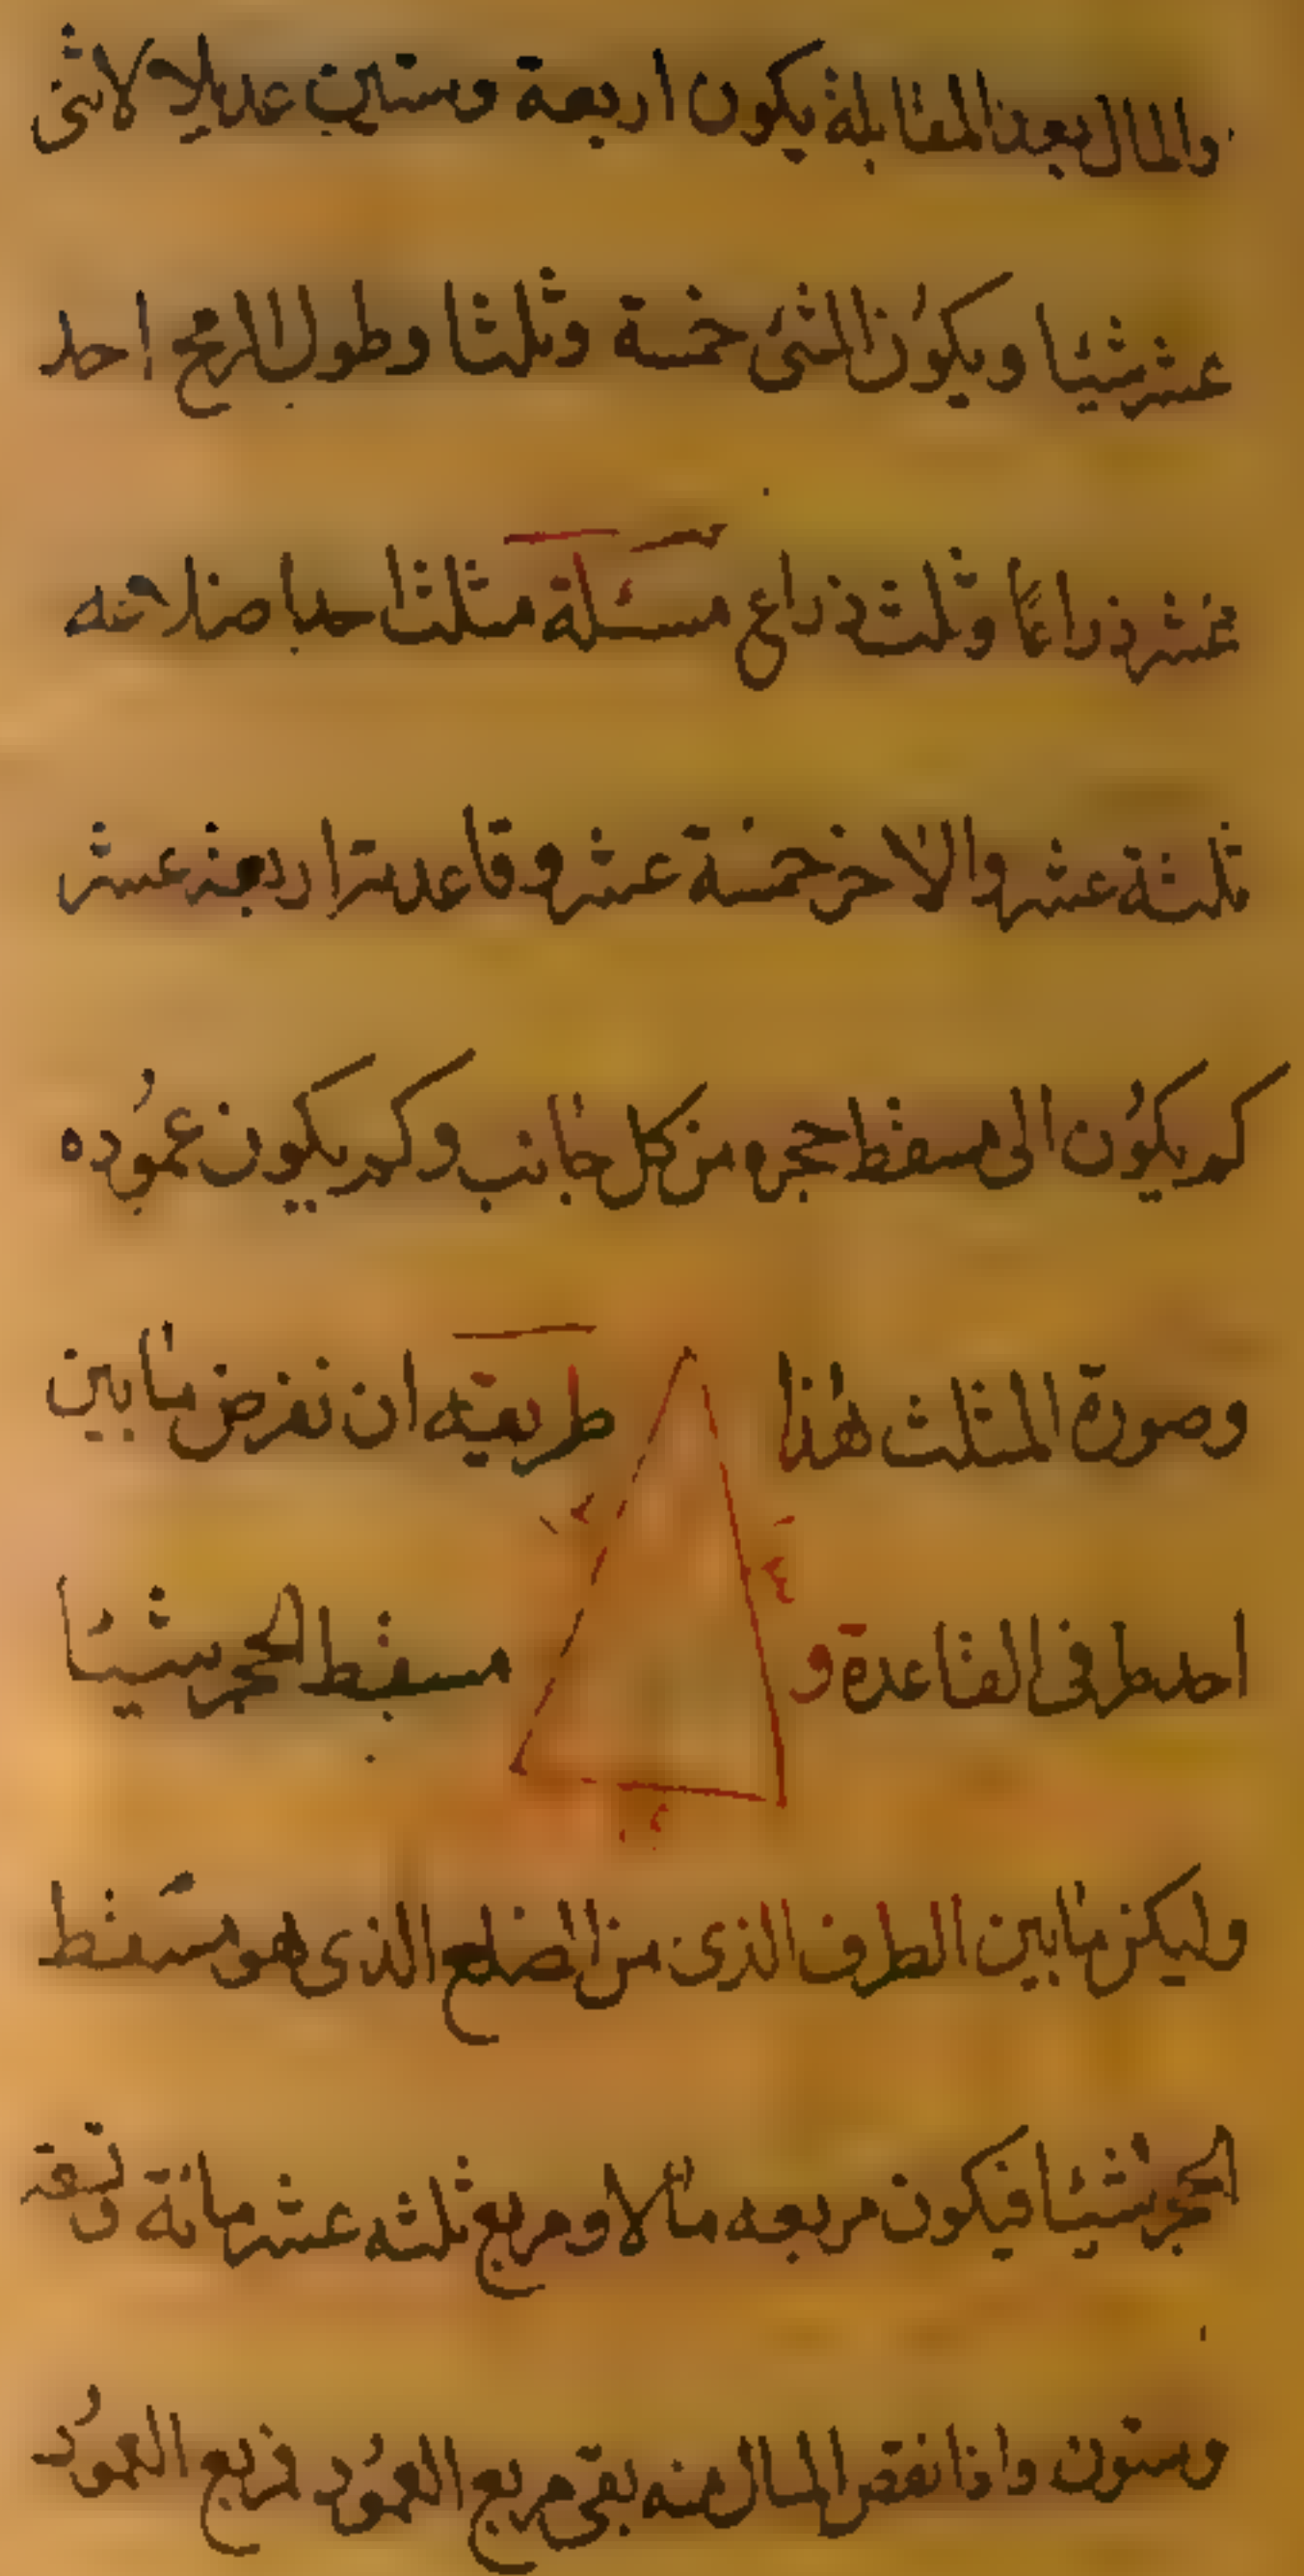 والمال بعد المقابلة يكون اربعة وستين عديلا لاثنى
عشر شيئا ويكون الشئ خمسة وثلثا وطول الرمح احد
عشر ذراعا وثلث ذراع مسئلة مثلث احد اضلاعه
ثلثة عشر والاخر خمسة عشر وقاعدته اربعة عشر
كم يكون الى مسقط حجره من كل جانب وكم يكون عموده
وصورة المثلث هذا طريقه ان نفرض ما بين
احد طرفى القاعدة و مسقط الحجر شيئا
وليكن ما بين الطرف الذى من الضلع الذى هو مسقط
الحجر شيئا فيكون مربعه مالا ومربع ثلثه عشر مائة وتسعة
وستون واذا نقص المال منه بقى مربع العمود فربع العمود